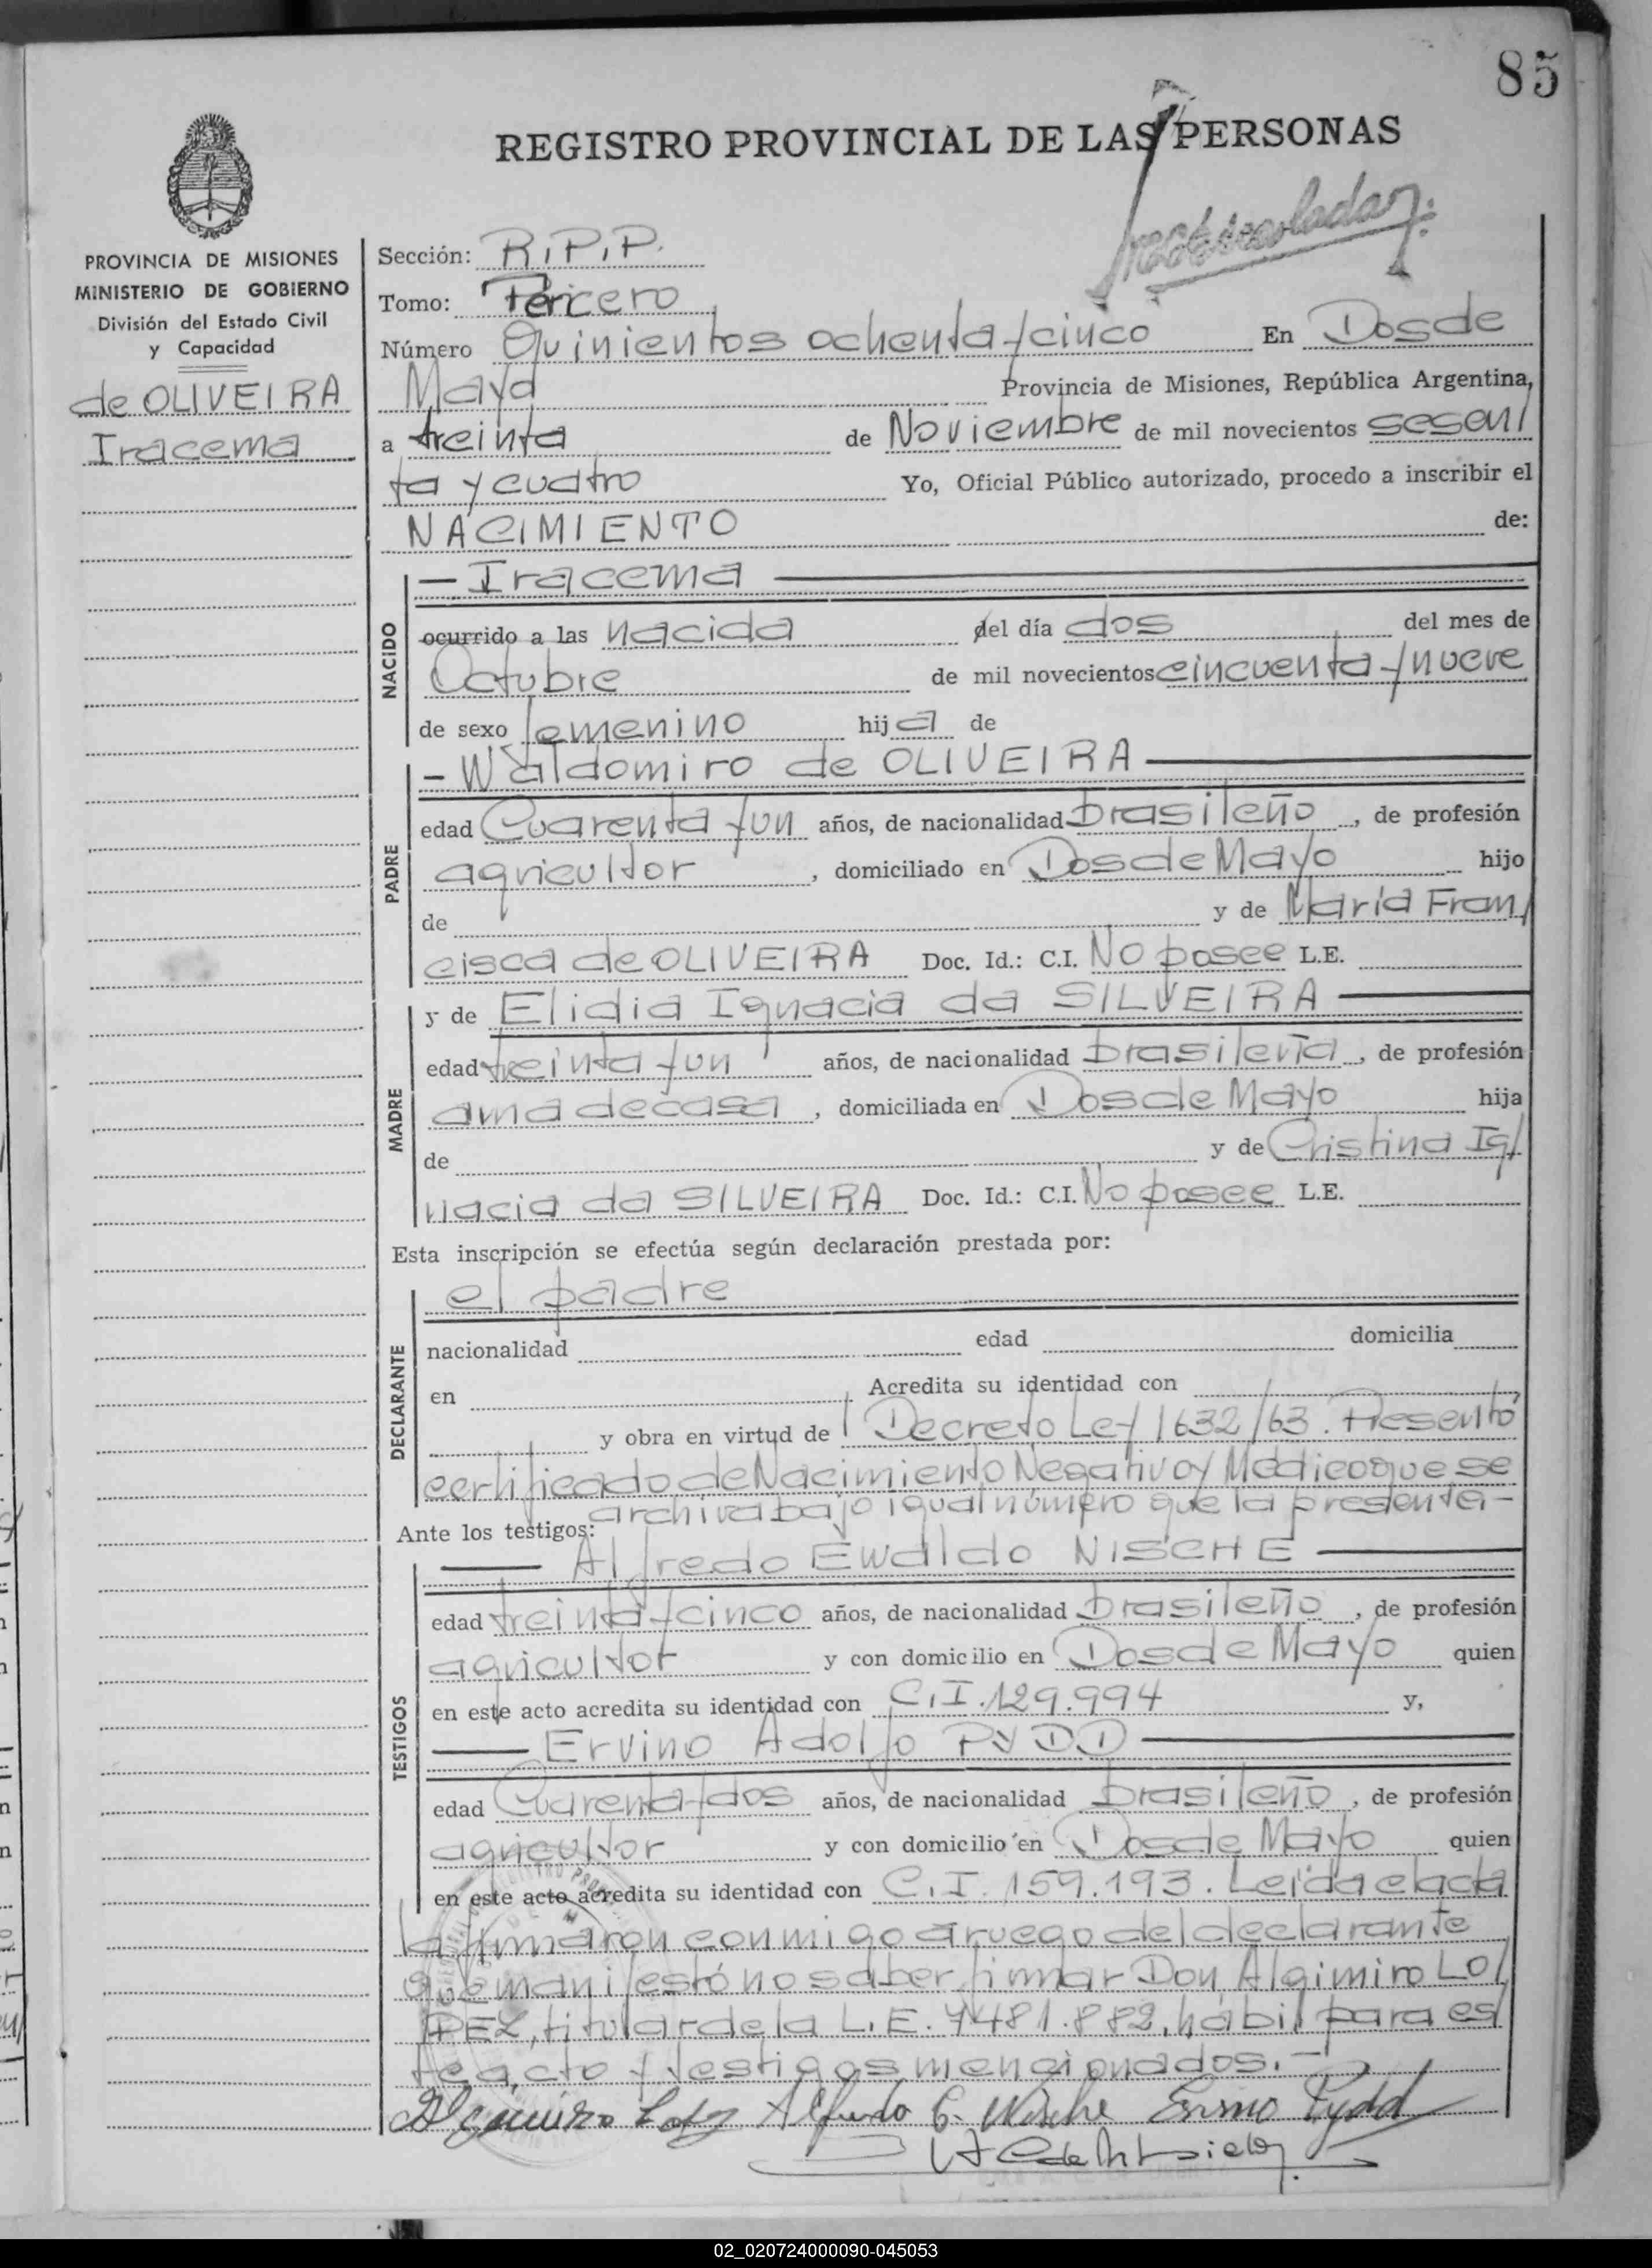 85
REGISTRO PROVINCIAL DE LAS PERSONAS
PROVINCIA DE MISIONES
MINISTERIO DE GOBIERNO
División del Estado Civil
y Capacidad
de OLIVEIRA
Iracema
Sección: R.P.P.
Tomo: Tercero
Número Quinientos ochenta y cinco En Dos de
Mayo Provincia de Misiones, República Argentina,
a treinta de Noviembre de mil novecientos sesen/
ta y cuatro Yo, Oficial Público autorizado, procedo a inscribir el
NACIMIENTO de:
NACIDO
— Iracema —
ocurrido a las nacida del día dos del mes de
Octubre de mil novecientos cincuenta y nueve
de sexo femenino hija de
PADRE
- Waldomiro de OLIVEIRA —
edad Cuarenta y un años, de nacionalidad brasileño, de profesión
agricultor, domiciliado en Dos de Mayo hijo
de y de María Fran/
cisca de OLIVEIRA Doc. Id.: C.I. No posee L.E.
MADRE
y de Elidia Ignacia da SILVEIRA —
edad treinta y un años, de nacionalidad brasileña, de profesión
ama de casa, domiciliada en Dos de Mayo hija
de y de Cristina Ig/
nacia da SILVEIRA Doc. Id.: C.I. No posee L.E.
Esta inscripción se efectúa según declaración prestada por:
DECLARANTE
el padre
nacionalidad edad domicilia
en Acredita su identidad con
y obra en virtud de Decreto Ley 1632/63. Presentó
certificado de Nacimiento Negativo y Médico que se
archiva bajo igual número que la presente.-
Ante los testigos:
TESTIGOS
— Alfredo Ewaldo NISCHE —
edad treinta y cinco años, de nacionalidad brasileño, de profesión
agricultor y con domicilio en Dos de Mayo quien
en este acto acredita su identidad con C.I. 129.994 y,
— Ervino Adolfo PYDD —
edad Cuarenta y dos años, de nacionalidad brasileño, de profesión
agricultor y con domicilio en Dos de Mayo quien
en este acto acredita su identidad con C.I. 159.193. Leída el acta
la firmaron conmigo a ruego del declarante
que manifestó no saber firmar Don Algimiro LO/
PEZ, titular de la L.E. 7481.882, hábil para es/
te acto y testigos mencionados.-
Algimiro Lopez Alfredo E. Nische Ervino Pydd
02_020724000090-045053